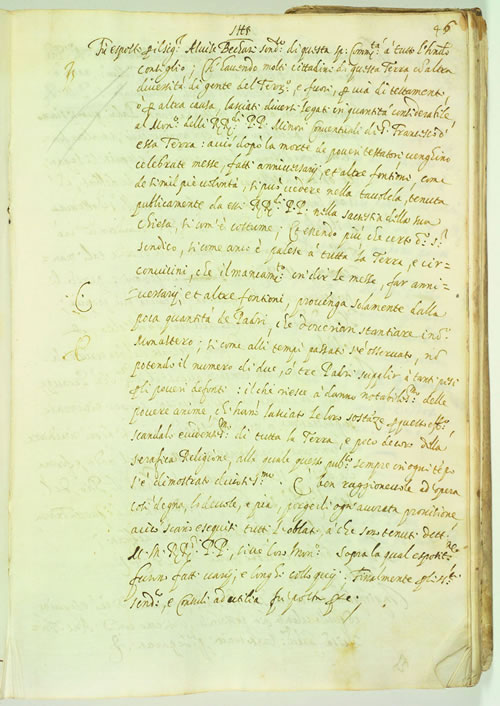 IHS 46
Fù esposto p il sigr. Aluise sindo. di questa sp: Commtà. à tutto l'
consiglio; Ch'havendo molti cittadini di questa Terra et altra
diversità di gente del Terro. e fuori, p via di testamenti
ò p altra causa, lasciati diversi legati in quantità considerabile
al Mono. delli RRdi. PP. Minori Conventuali di S. Francesco d'
essa Terra: acciò dopo la morte de poveri testatori venghino
celebrate messe, fatti anniversarij, et altre fontioni, come
de simil pie volontà, si può vedere nella tavolela, tenuta
publicamente da essi RRdi. PP. nella sacrestia della sua
Chiesa, si com'è costume; Et essendo più che certo
sindico, si come anco è palese à tutta la Terra, e cir=
convicini, che il mancamto. in dir le messe, far anni=
versarij et altre fontioni, provenga solamente dalla
poca quantità de Padri, che doveriano stantiare in do.
Monastero; si come alli tempi passati s'è osservato, nò
potendo il numero di due, ò tre Padri supplir à tanti pesi
gli poveri defonti: il che riesce à danno notabilmo. delle
povere anime, ch'hanò lasciato le loro sostanze p questo
scandalo evidentmo. di tutta la Terra, e poco decoro della
serafica Religione, alla quale questo pubco. sempre in ogni tèpo
s'è dimostrato
E ben raggionevole ad opera
così degna, lodevole, e pia, porgerli ogn'accurata provisione
acciò siano eseguiti tutti l'oblati, à che son tenuti detti
M. M. RRdi. PP., sive loro Mono. Sopra la qual espositne.
furono fatti varij, e longhi colloquij. Finalmente gli
sindo., e Consuli ad utilia fù posto pte.